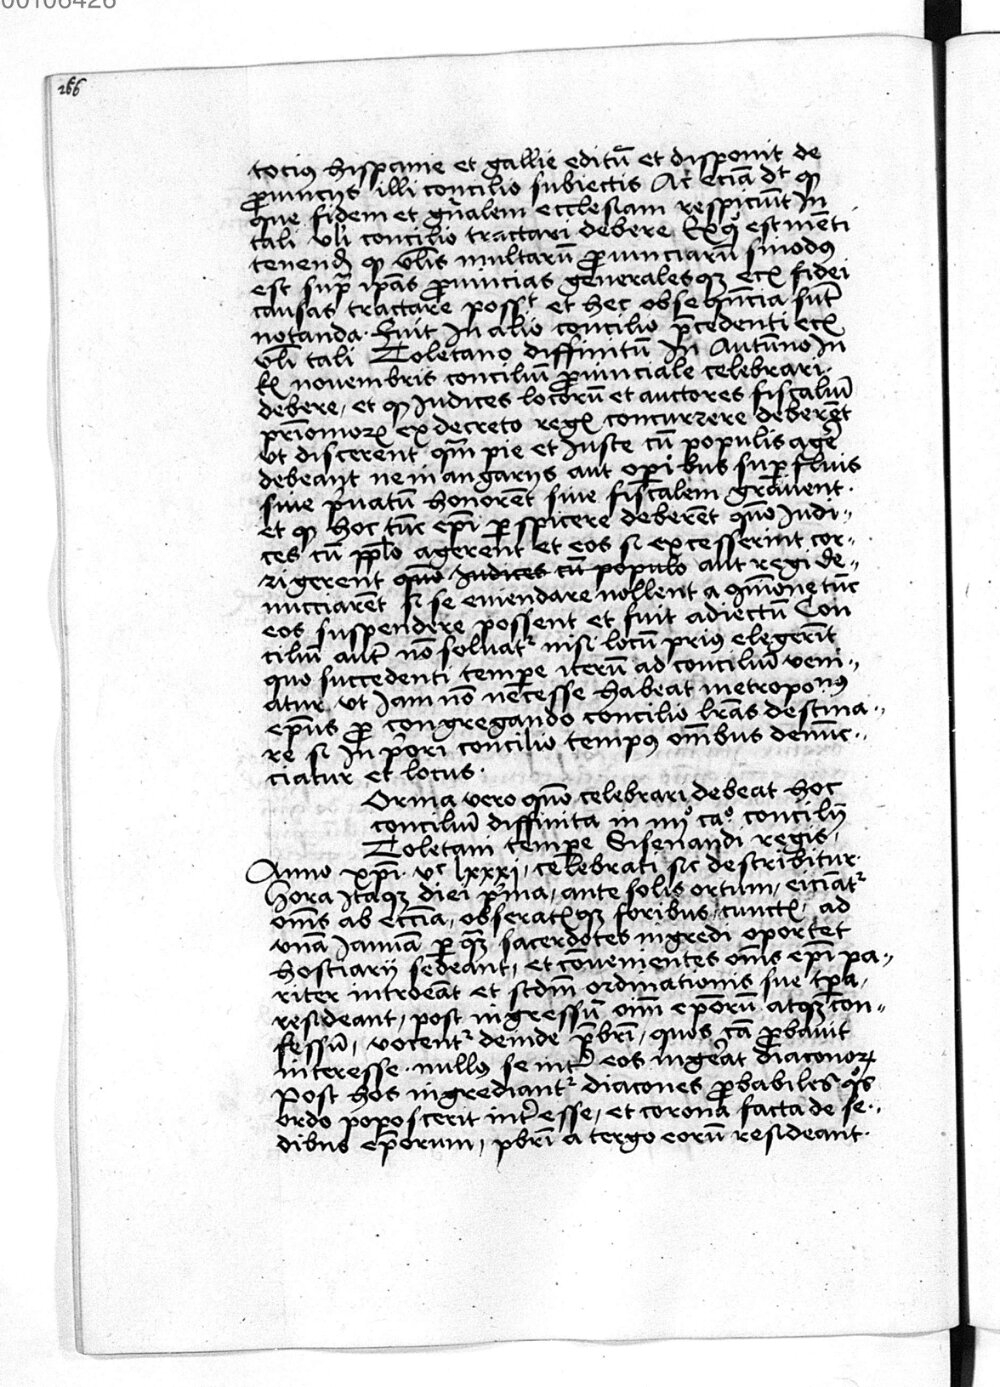 00106426
266
tocius hispanie et gallie editū et disponit de
ꝓuincijs illi concilio subiectis Ac eciā dt qꝫ
que fidem et gn̄alem ecclesiam respiciūt In
tali vli concilio tractari debere Ex quo est menti
tenend qꝫ vl̄is multarū ꝓuinciarū sinodus
est sup ip̄as ꝓuincias generalesqꝫ ecc fidei
causas tractare posset et hec obsequencia sūt
notanda. Fuit In alio concilio p̄cedenti ecc
vli tali Toletano diffinitū In Autūno In
kl novembris conciliū ꝓuinciale celebrari
debere, et qꝫ Iudices locorū et auctores fiscaliū
pr̄imonioꝝ ex decreto reg concurrere deberēt
vt discerent qm̄ pie et Iuste cū populis agē
debeant ne in angarijs aut operibus supfluis
siue p̄uatū honorēt siue fiscalem grauent.
et qꝫ hoc tūc ep̄i ꝑspicere deberēt quō Iudi„
ces cū pp̄lo agerent et eos si excesserint cor„
rigerent quō Iudices cū populo aut regi de„
nucciarēt si se emendare nollent a qm̄ione tūc
eos suspendere possent et fuit adiectū Con
ciliū autē nō soluatr nisi locū prius elegerīt
quo succedenti tempe iterū ad conciliū veni„
atur vt Iam nō necesse habeat metroponus
ep̄us ꝓ congregando concilio lr̄as destina„
re si In p̄ori concilio tempus oībus denūc„
ciatur et locus.
Orma vero quō celebrari debeat hoc
conciliū diffinita in iiijo cao concilij
Toletani tempe Sisenandi regis,
Anno xp̄i. vc lxxxj, celebrati sic describitur.
Hora Itaqꝫ diei p̄ma, ante solis ortum, eiciātr
om̄s ab ecc̄ia, obseratisqꝫ foribus, cunctis, ad
vnā Ianuā ꝑ quā sacerdotes ingredi oportet
hostiarij sedeant, et cōuenientes om̄s ep̄i pa„
riter introeāt et scdm̄ ordinationis sue tp̄a,
resideant, post ingressū oīm ep̄orū atqꝫ con„
fessū, vocentr deinde p̄bri, quos cā ꝓbauit
interesse. nullus se int̄ eos ingerat diaconoꝝ
Post hos ingrediantr diacones ꝓbabiles qos
ordo poposcerit int̄esse, et corona facta de se„
dibus ep̄orum, pbri a tergo eorū resideant.